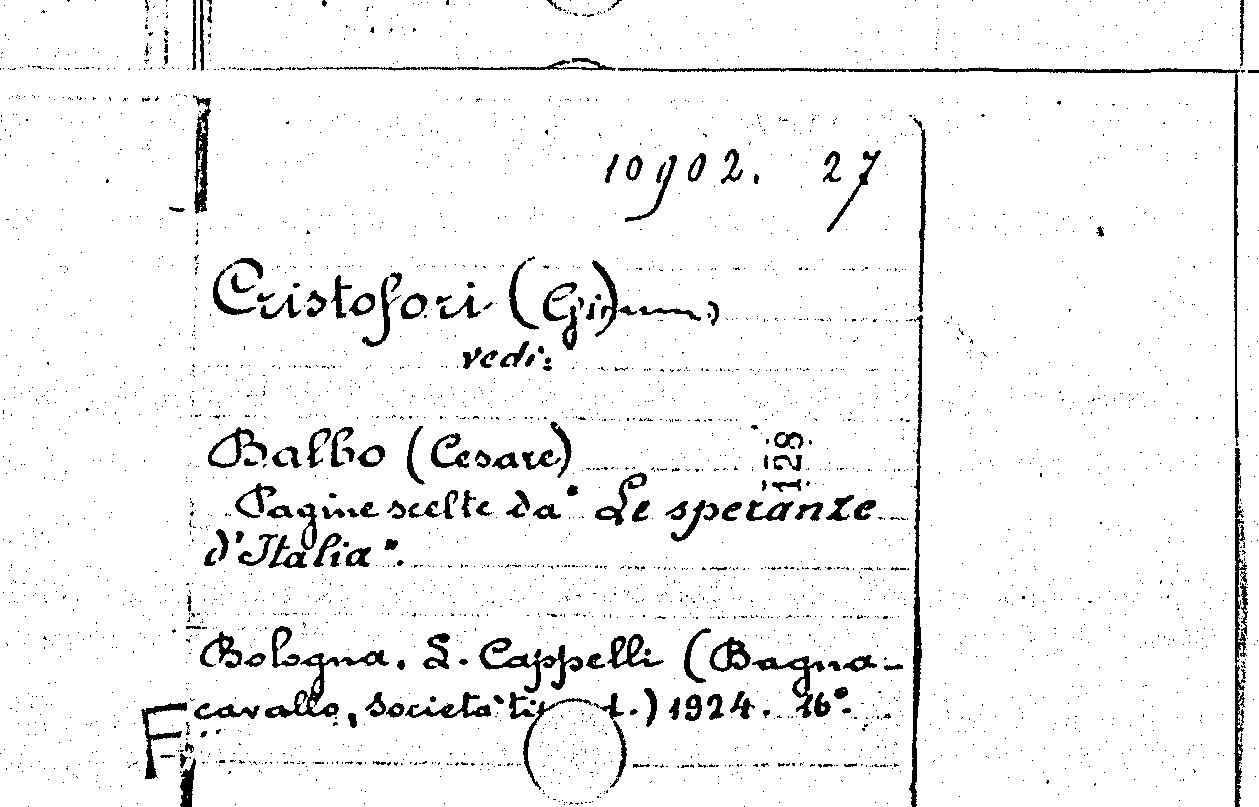 10902. 27
Cristofori
vedi:
Balbo (Cesare)
128
Pagine scelte da "Le speranze
d'Italia".
Bologna. L. Cappelli (Bagna-
cavallo, società 1924. 16°.
F